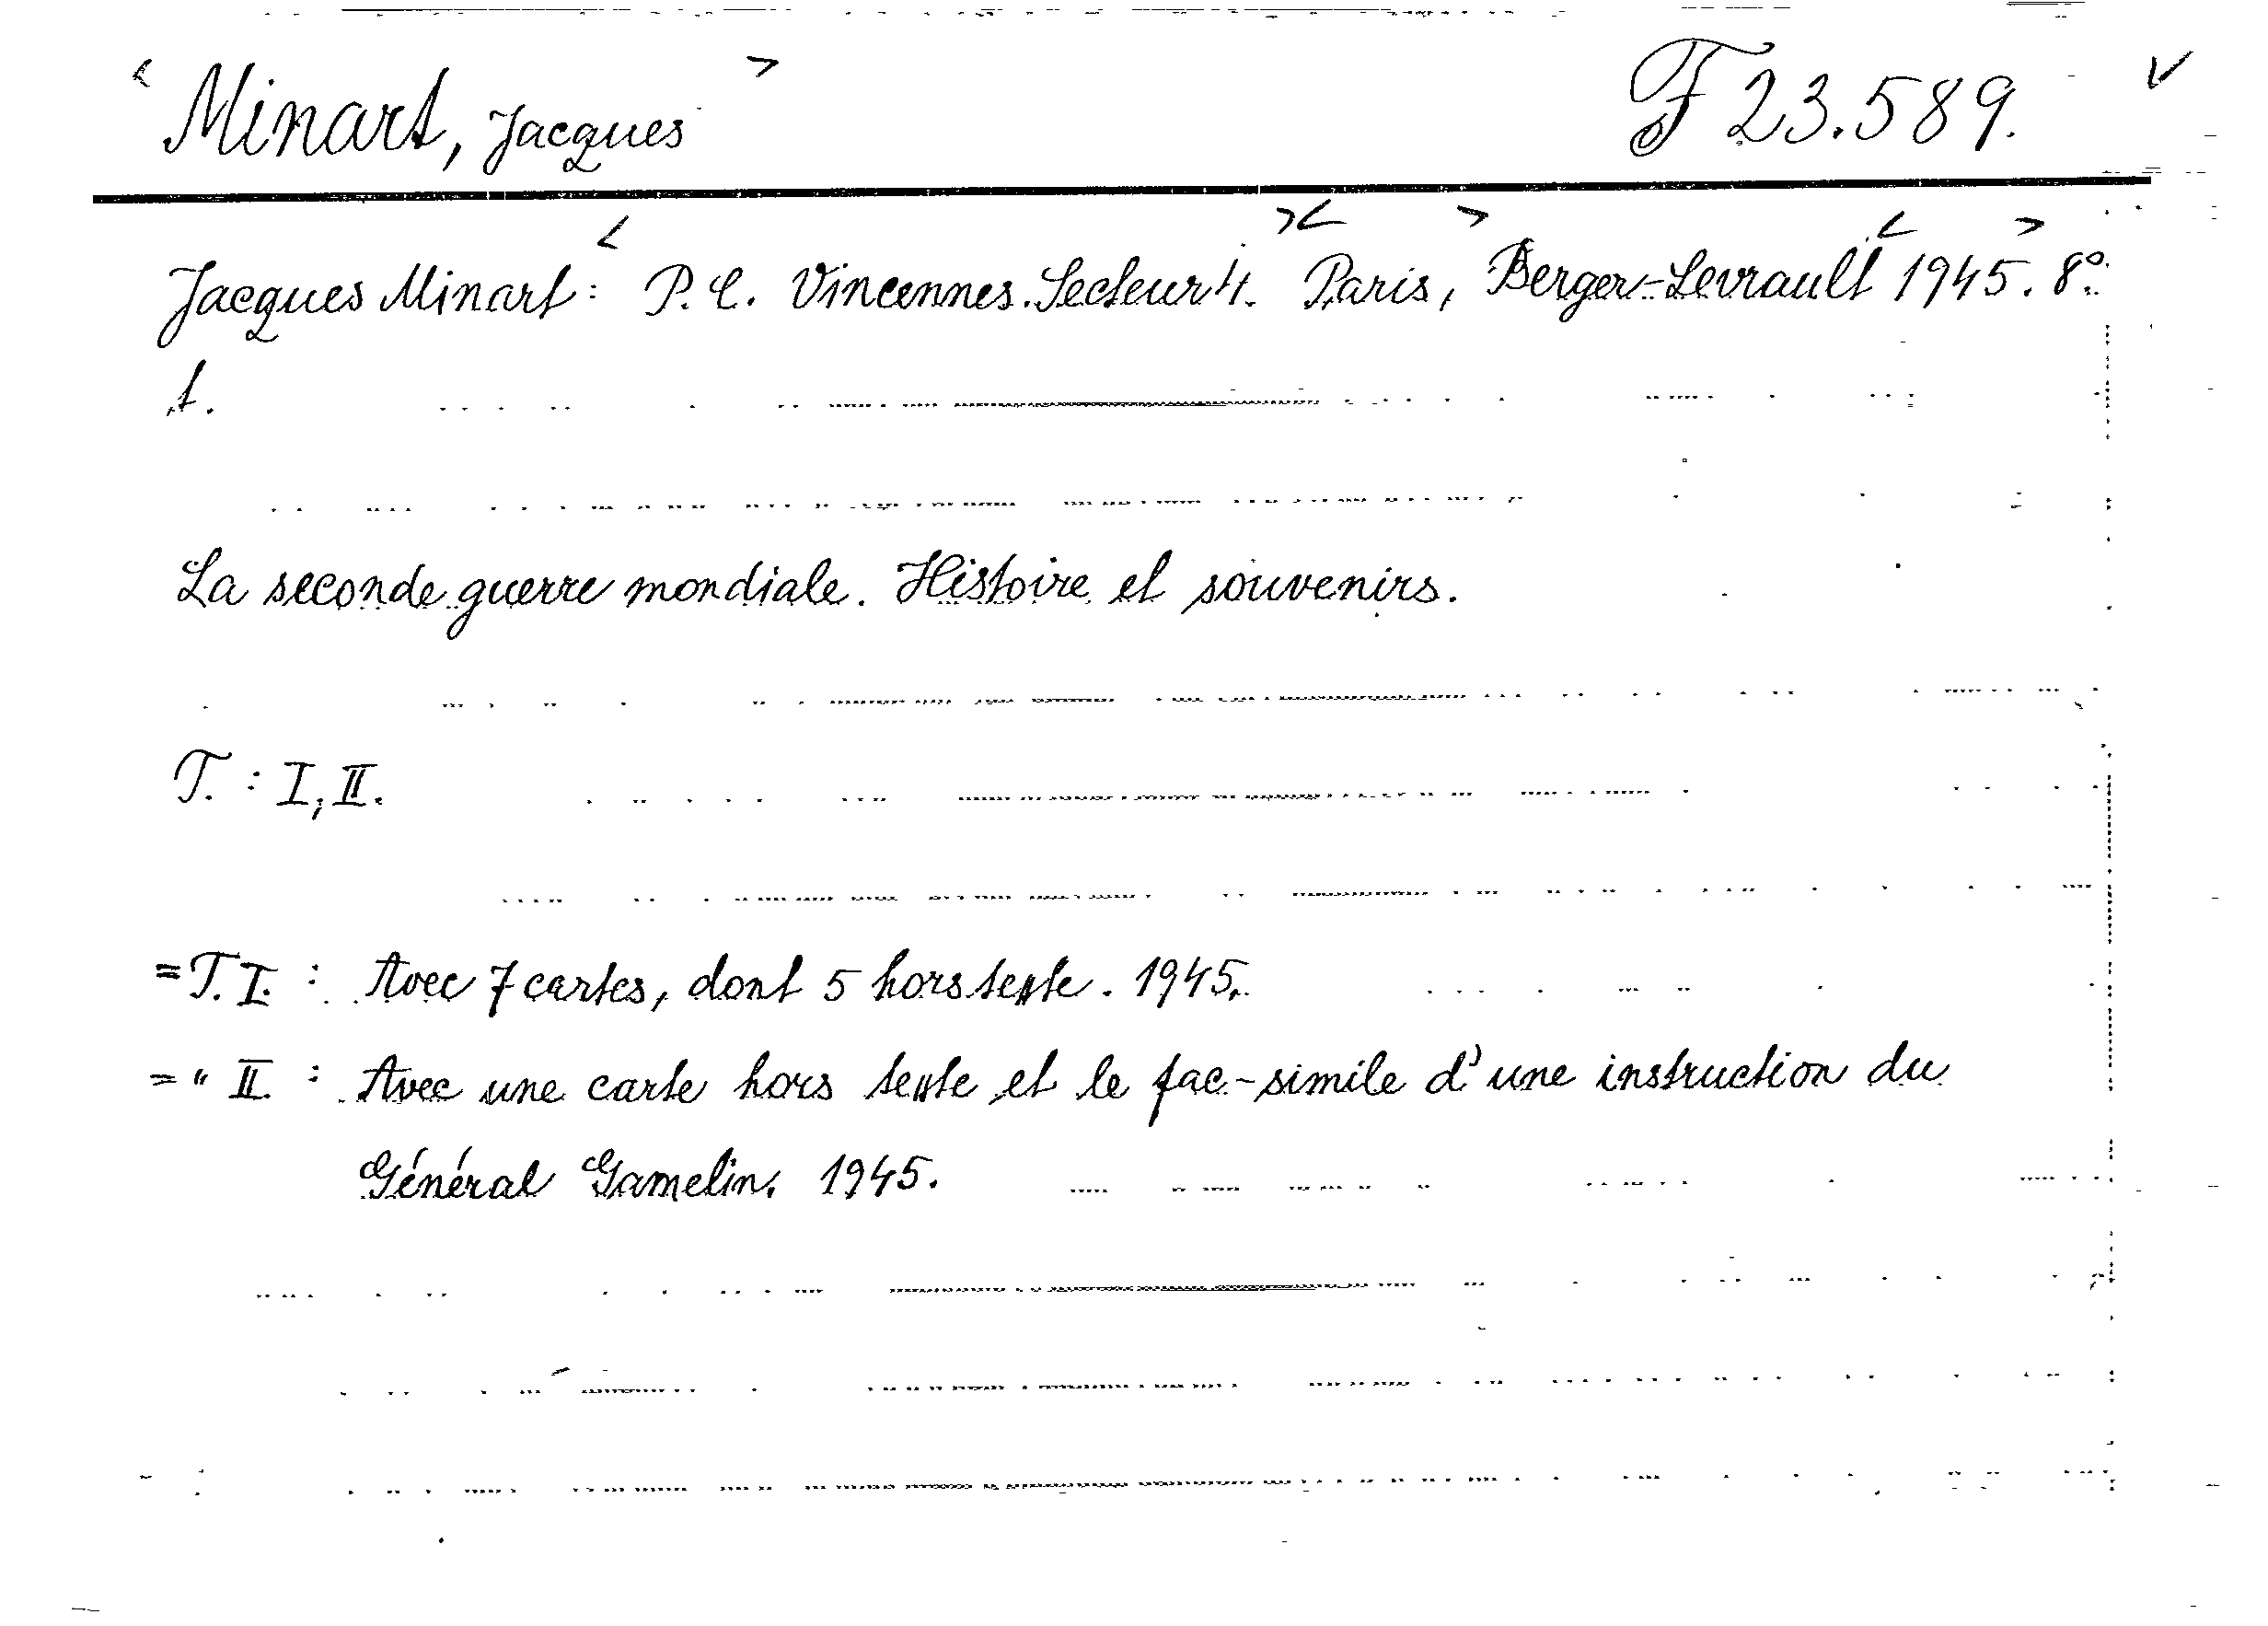 Minart, Jacques F 23.589.
Jacques Minart: P. C. Vincennes. Secteur 4. Paris, Berger-Levrault 1945. 8°.
t.
La seconde guerre mondiale. Histoire et souvenirs.
T. : I, II.
= T. I. : Avec 7 cartes, dont 5 hors texte. 1945.
= " II. : Avec une carte hors texte et le fac-simile d'une instruction du
Général Gamelin. 1945.